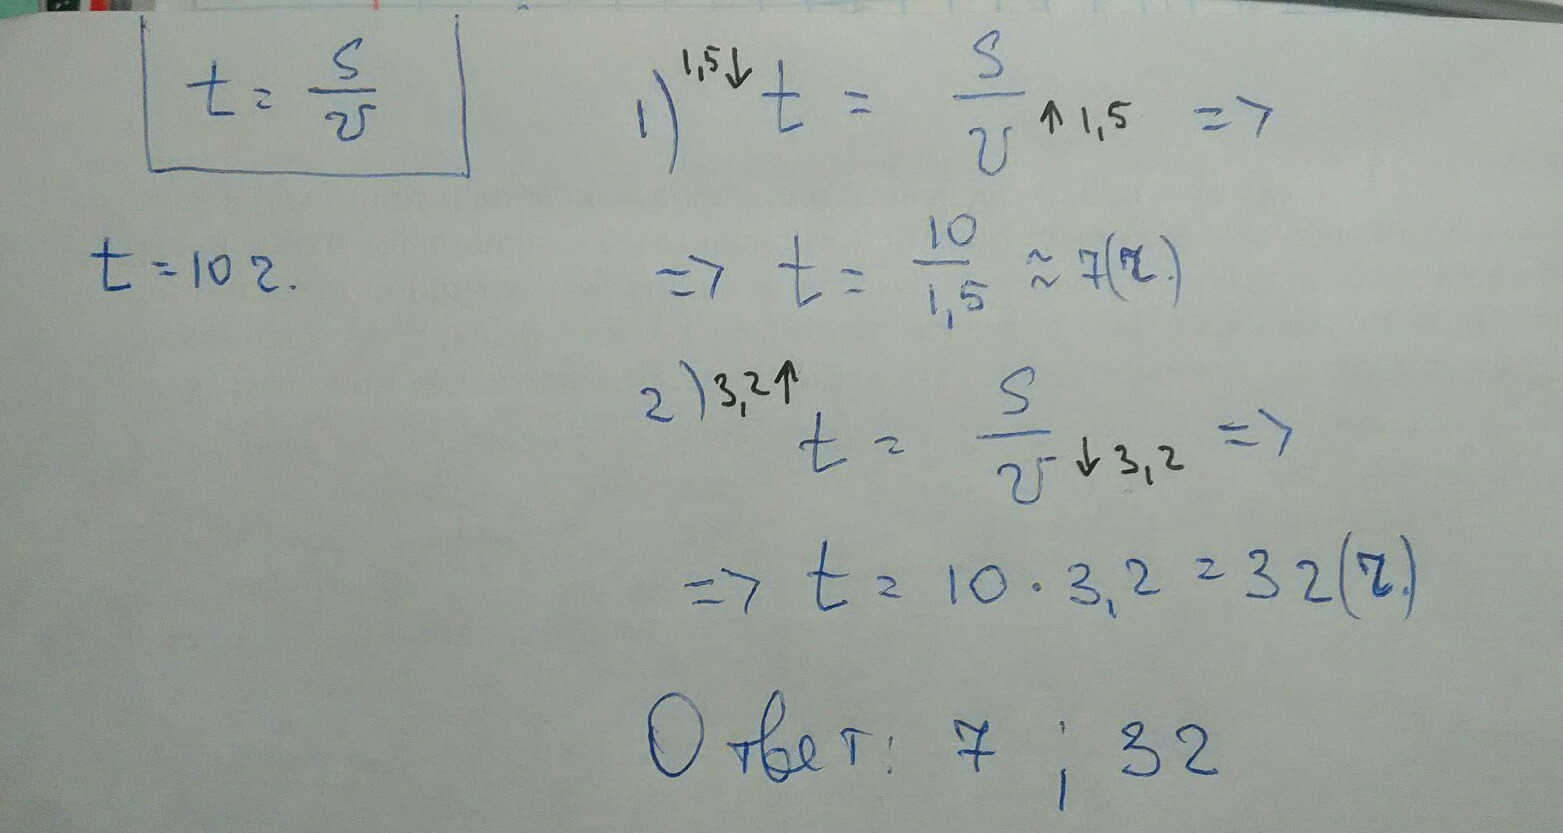 t = S/v
t = 10 г.
1) 1,5↓ t = S/v ↑ 1,5 =>
=> t = 10/1,5 ≈ 7(г.)
2) 3,2↑ t = S/v ↓ 3,2 =>
=> t = 10 · 3,2 = 32(г.)
Ответ: 7 ; 32